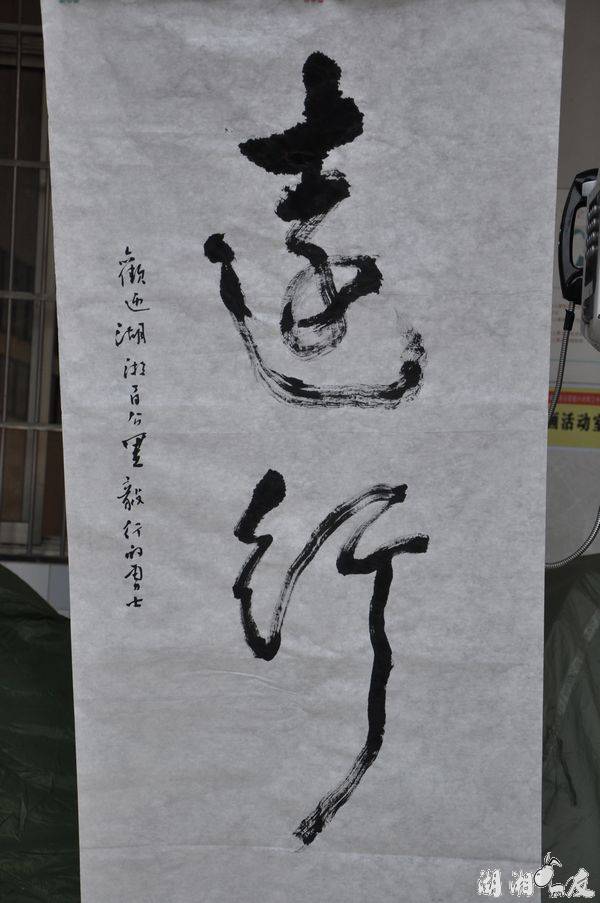 遠行
歡迎湖湘百公里毅行的勇士
活动室
湖湘 友